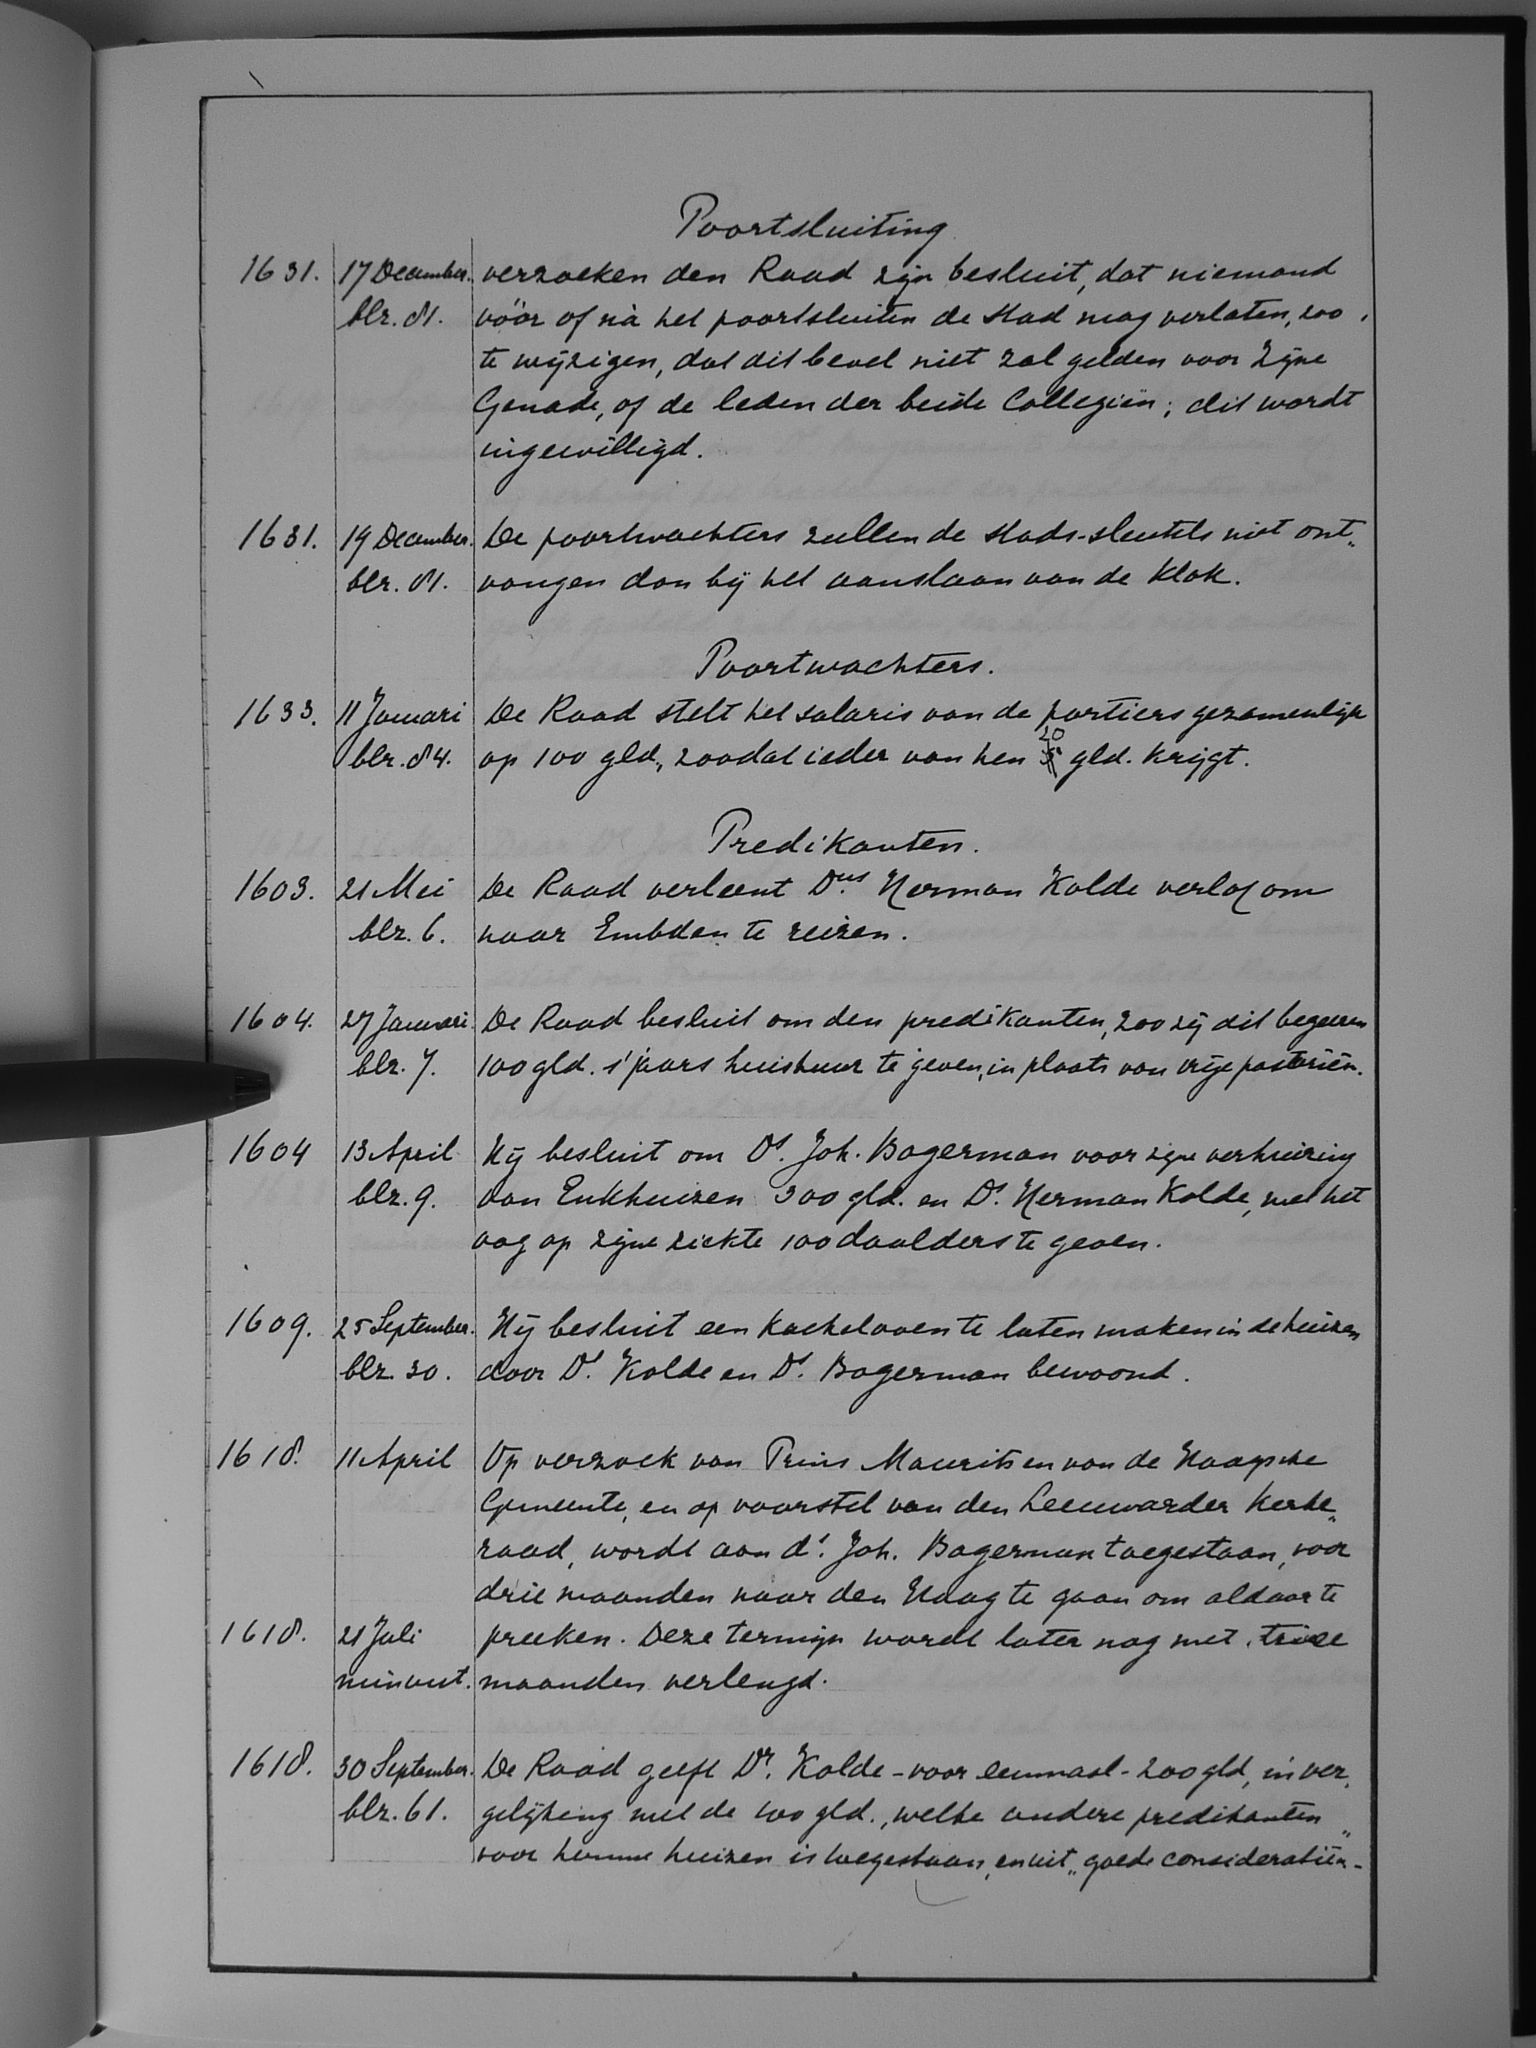 Poortsluiting
1631. 17 December. verzoeken den Raad zijn besluit, dat niemand
blz. 81. vóór of nà het poortsluiten de stad mag verlaten, zoo
te wijzigen, dat dit bevel niet zal gelden voor Zijne
Genade, of de leden der beide Collegiën; dit wordt
ingewilligd.
1631. 19 December. De poortwachters zullen de stads-sleutels niet ont„
blz. 81. vangen dan bij het aanslaan van de klok.
Poortwachters.
1633. 11 Januari De Raad stelt het salaris van de portiers gezamenlijk
blz. 84. op 100 gld., zoodat ieder van hen 20 gld. krijgt.
Predikanten.
1603. 21 Mei De Raad verleent Dus. Herman Kolde verlof om
blz. 6. naar Embden te reizen.
1604. 27 Januari. De Raad besluit om den predikanten, zoo zij dit begeeren
blz. 7. 100 gld. s'jaars huishuur te geven, in plaats van vrije pastoriën.
1604 13 April Hij besluit om Ds. Joh. Bogerman voor zijne verhuizing
blz. 9. van Enkhuizen 300 gld. en Ds. Herman Kolde, met het
oog op zijne ziekte 100 daalders te geven.
1609. 25 September. Hij besluit een kacheloven te laten maken in de huizen
blz. 30. door Ds. Kolde en Ds. Bogerman bewoond.
1618. 11 April Op verzoek van Prins Maurits en van de Haagsche
Gemeente, en op voorstel van den Leeuwarder Kerke„
raad, wordt aan ds. Joh. Bogerman toegestaan, voor
drie maanden naar den Haag te gaan om aldaar te
1618. 21 Juli preeken. Deze termijn wordt later nog met twee
minuut. maanden verlengd.
1618. 30 September. De Raad geeft Ds. Kolde - voor eenmaal - 200 gld, in ver„
blz. 61. gelijking met de 100 gld., welke andere predikanten
voor hunne huizen is toegestaan, en uit „goede consideratiën„-